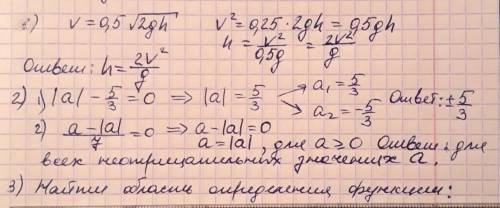 1) v = 0,5 √2gh   v² = 0,25 · 2gh = 0,5gh
h = v²/0,5g = 2v²/g
Ответ: h = 2v²/g
2) 1) |a| - 5/3 = 0 ⟹ |a| = 5/3   a₁ = 5/3   a₂ = -5/3   Ответ: ± 5/3
2) a-|a|/7 = 0 ⟹ a-|a| = 0
a = |a|, для a ≥ 0   Ответ: для
всех неотрицательных значений a.
3) Найти область определения функции: